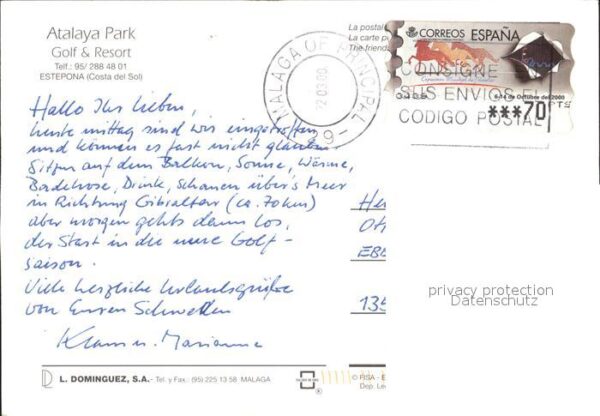 Atalaya Park
Golf & Resort
Telf.: 95/ 288 48 01
ESTEPONA (Costa del Sol)
La postal
La carte p
The friend
CORREOS ESPAÑA
6-14 de Octubre del 2000
***70
PTS
MALAGA OF. PRINCIPAL
22 03 00
29
CONSIGNE
SUS ENVIOS
CODIGO POSTAL
Hallo Ihr Lieben,
heute mittag sind wir eingetroffen
und können es fast nicht glauben.
Sitzen auf dem Balkon, Sonne, Wärme,
Badehose, Drink, Schauen über's Meer
in Richtung Gibraltar (ca. 70 km)
aber morgen gehts dann los,
der Start in die neue Golf-
saison.
Viele herzliche Urlaubsgrüße
von Euren
Klaus u. Marianne
He
Ot
EBE
135
privacy protection
Datenschutz
L. DOMINGUEZ, S.A.- Tel. y Fax.: (95) 225 13 58 MALAGA
© FISA - E
Dep. Le